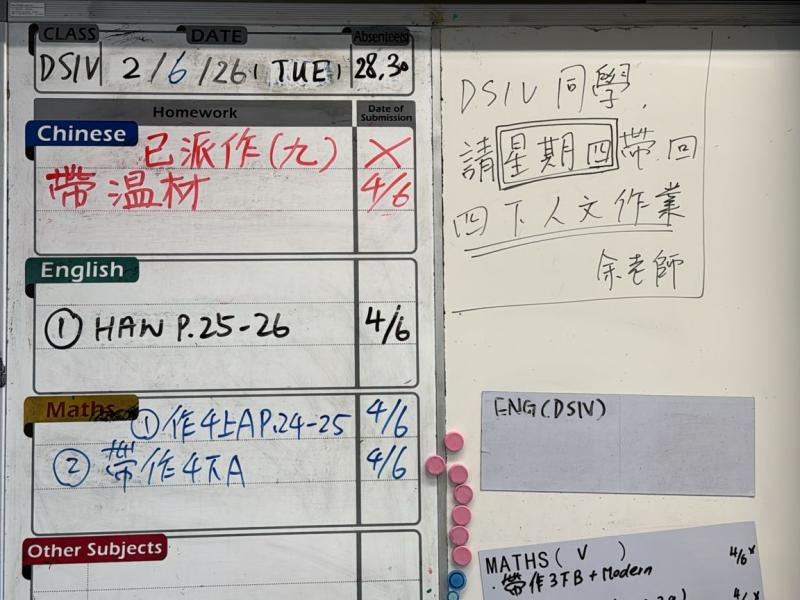 CLASS DATE Absentees
DSIV 2/6/26 (TUE) 28,30
Homework Date of Submission
Chinese
已派作(九) X
帶温材 4/6
English
① HAW P.25-26 4/6
Maths
① 作4上A P.24-25 4/6
② 帶作4下A 4/6
Other Subjects
DSIV 同學,
請星期四帶回
四下人文作業
余老師
ENG(DSIV)
MATHS( V ) 4/6
· 帶作3下B + Modern